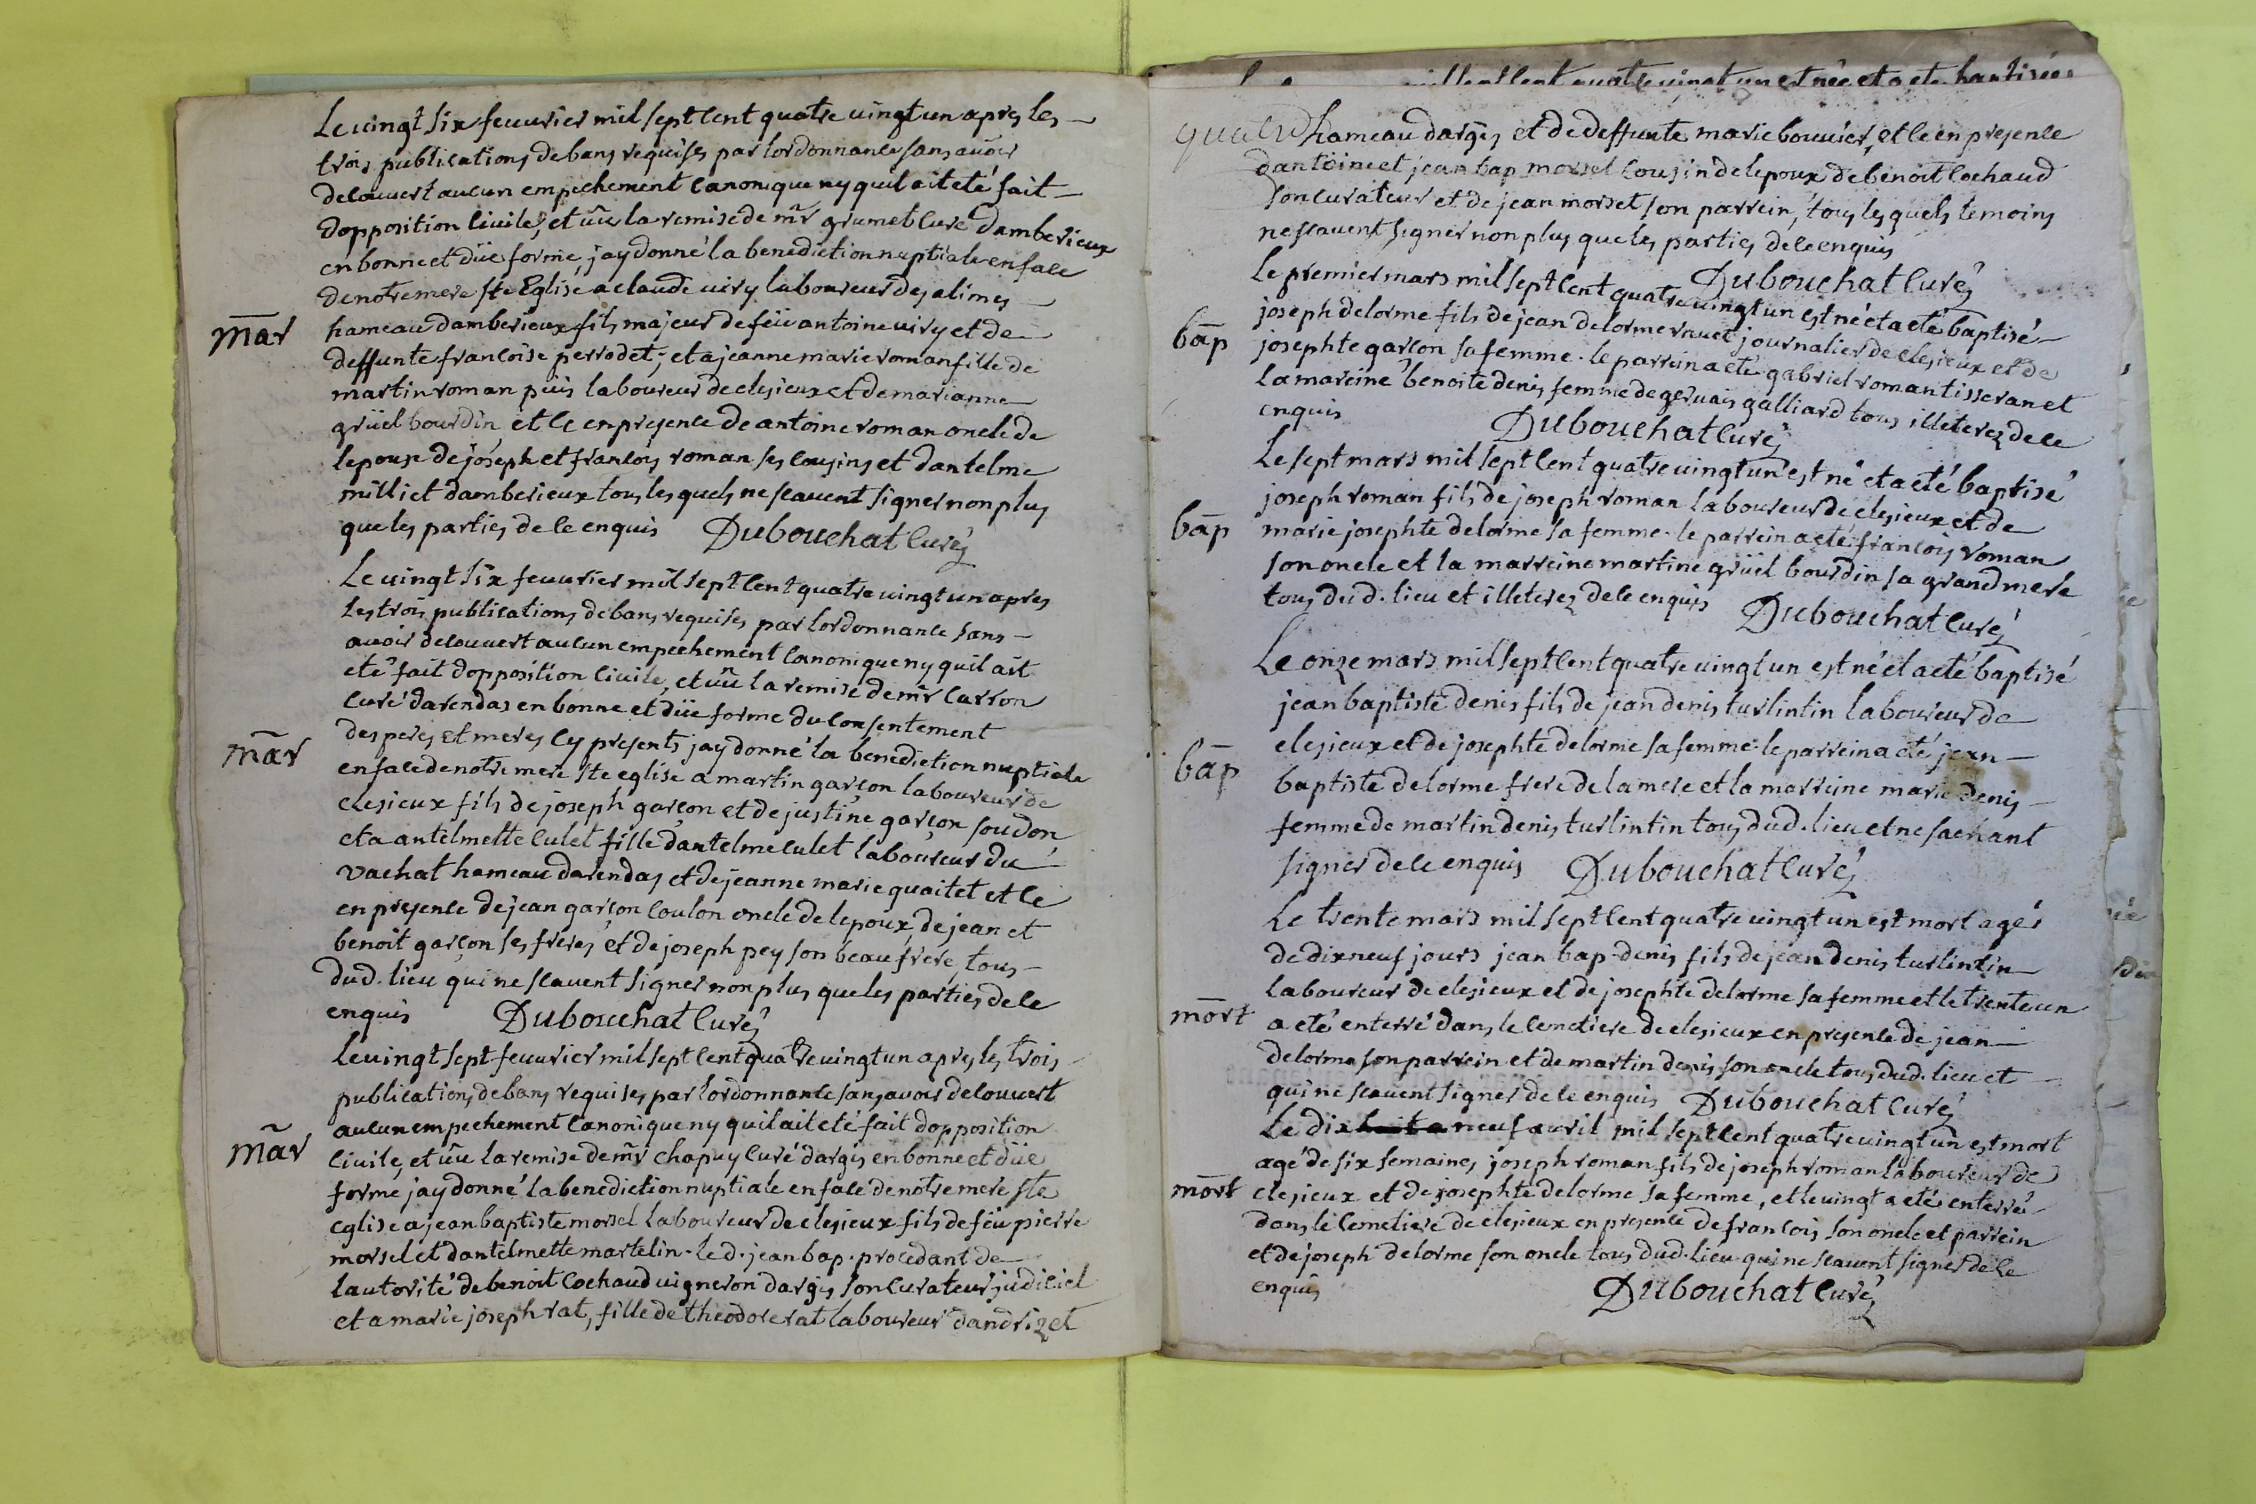 Le vingt six feuvrier mil sept cent quatre vingt un apres les
trois publications de bans requises par lordonnance sans avoir
decouvert aucun empechement canonique ny quil ait eté fait
dopposition civile, et vû la remise de mr grumet curé damberieux
en bonne et düe forme, jay donné la benediction nuptiale en face
de notre mere ste Eglise, a claude viry laboureur des alimes
mar
hameau damberieux fils majeur de feü antoine viry et de
deffunte francoise perrodet; et a jeanne marie roman fille de
martin roman puis laboureur de clesieux et de marianne
grüel bourdin et ce en presence de antoine roman oncle de
lepouse de joseph et francois roman ses cousins et dantelme
milliet damberieux tous les quels ne scavent signer non plus
que les parties de ce enquis Dubouchat curé
Le vingt six feuvrier mil sept cent quatre vingt un apres
les trois publications de bans requises par lordonnance sans
avoir decouvert aucun empechement canonique ny quil ait
eté fait dopposition civile, et vû la remise de mr carron
curé darendas en bonne et düe forme du consentement
des peres et meres cy presents jay donné la benediction nuptiale
mar
en face de notre mere ste eglise a martin garçon laboureur de
clesieux fils de joseph garçon et de justine garçon soudon
et a antelmette culet fille dantelme culet laboureur du
vachat hameau darendas et de jeanne marie quaitet et ce
en presence de jean garçon coulon oncle de lepoux, de jean et
benoit garçon ses freres, et de joseph pey son beau frere, tous
dud. lieu qui ne scavent signer non plus que les parties de ce
enquis Dubouchat curé
Le vingt sept feuvrier mil sept cent quatre vingt un apres les trois
publications de bans requises par lordonnance sans avoir decouvert
aucun empechement canonique ny quil ait eté fait dopposition
mar
civile, et vû la remise de mr chapuy curé dargis en bonne et düe
forme jay donné la benediction nuptiale en face de notre mere ste
eglise a jean baptiste morsel laboureur de clesieux fils de feü pierre
morsel et dantelmette martelin. le d. jean bap. procedant de
lautorité de benoit cochaud vigneron dargis son curateur judiciel
et a marie joseph rat, fille de theodore rat laboureur dandrizet
mil sept cent quatre vingt un est née et a eté baptisée
quatr
hameau dargis et de deffunte marie bouvier, et ce en presence
dantoine et jean bap morsel cousin de lepoux de benoit cochaud
son curateur et de jean morset son parrein, tous les quels temoins
ne scavent signer non plus que les parties de ce enquis
Dubouchat curé
Le premier mars mil sept cent quatre vingt un est né et a eté baptisé
joseph delorme fils de jean delorme ravet journalier de clesieux et de
bap
josephte garçon sa femme. le parrein a eté gabriel roman tisseran et
la mareine benoite denis femme de gervais galliard tous illeterez de ce
enquis Dubouchat curé
Le sept mars mil sept cent quatre vingt un est né et a eté baptisé
joseph roman fils de joseph roman laboureur de clesieux et de
bap
marie josephte delorme sa femme. le parrein a eté françois roman
son oncle et la marreine martine grüel bourdin sa grand mere
tous dud. lieu et illeterez de ce enquis Dubouchat curé
Le onze mars mil sept cent quatre vingt un est né et a eté baptisé
jean baptiste denis fils de jean denis turlintin laboureur de
clesieux et de josephte delorme sa femme. le parrein a eté jean
bap
baptiste delorme frere de la mere et la marreine marie denis
femme de martin denis turlintin tous dud. lieu et ne sachant
signer de ce enquis Dubouchat curé
Le trente mars mil sept cent quatre vingt un est mort agé
de dix neuf jours jean bap. denis fils de jean denis turlintin
laboureur de clesieux et de josephte delorme sa femme et le trente un
mort
a eté enterré dans le cemetiere de clesieux en presence de jean
delorme son parrein et de martin denis son oncle tous dud. lieu et
qui ne scavent signer de ce enquis Dubouchat curé
Le dix neuf avril mil sept cent quatre vingt un est mort
agé de six semaines joseph roman fils de joseph roman laboureur de
mort
clesieux et de josephte delorme sa femme, et le vingt a eté enterré
dans le cemetiere de clesieux en presence de francois son oncle et parrein
et de joseph delorme son oncle tous dud. lieu qui ne scavent signer de ce
enquis Dubouchat curé